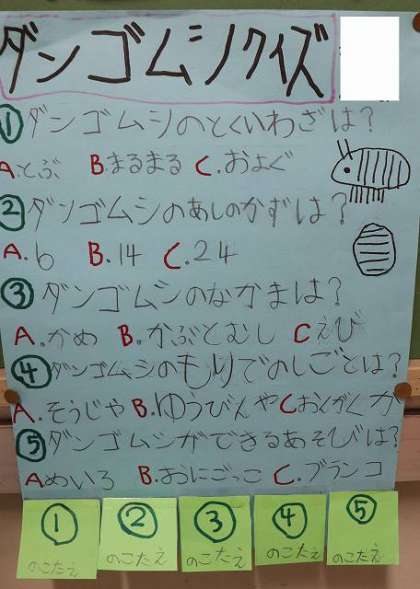 ダンゴムシクイズ
①ダンゴムシのとくいわざは?
A.とぶ B.まるまる C.およぐ
②ダンゴムシのあしのかずは?
A.6 B.14 C.24
③ダンゴムシのなかまは?
A.かめ B.かぶとむし Cえび
④ダンゴムシのもりでのしごとは?
A.そうじや B.ゆうびんや Cおんがくか
⑤ダンゴムシができるあそびは?
Aめいろ B.おにごっこ C.ブランコ
①のこたえ
②のこたえ
③のこたえ
④のこたえ
⑤のこたえ